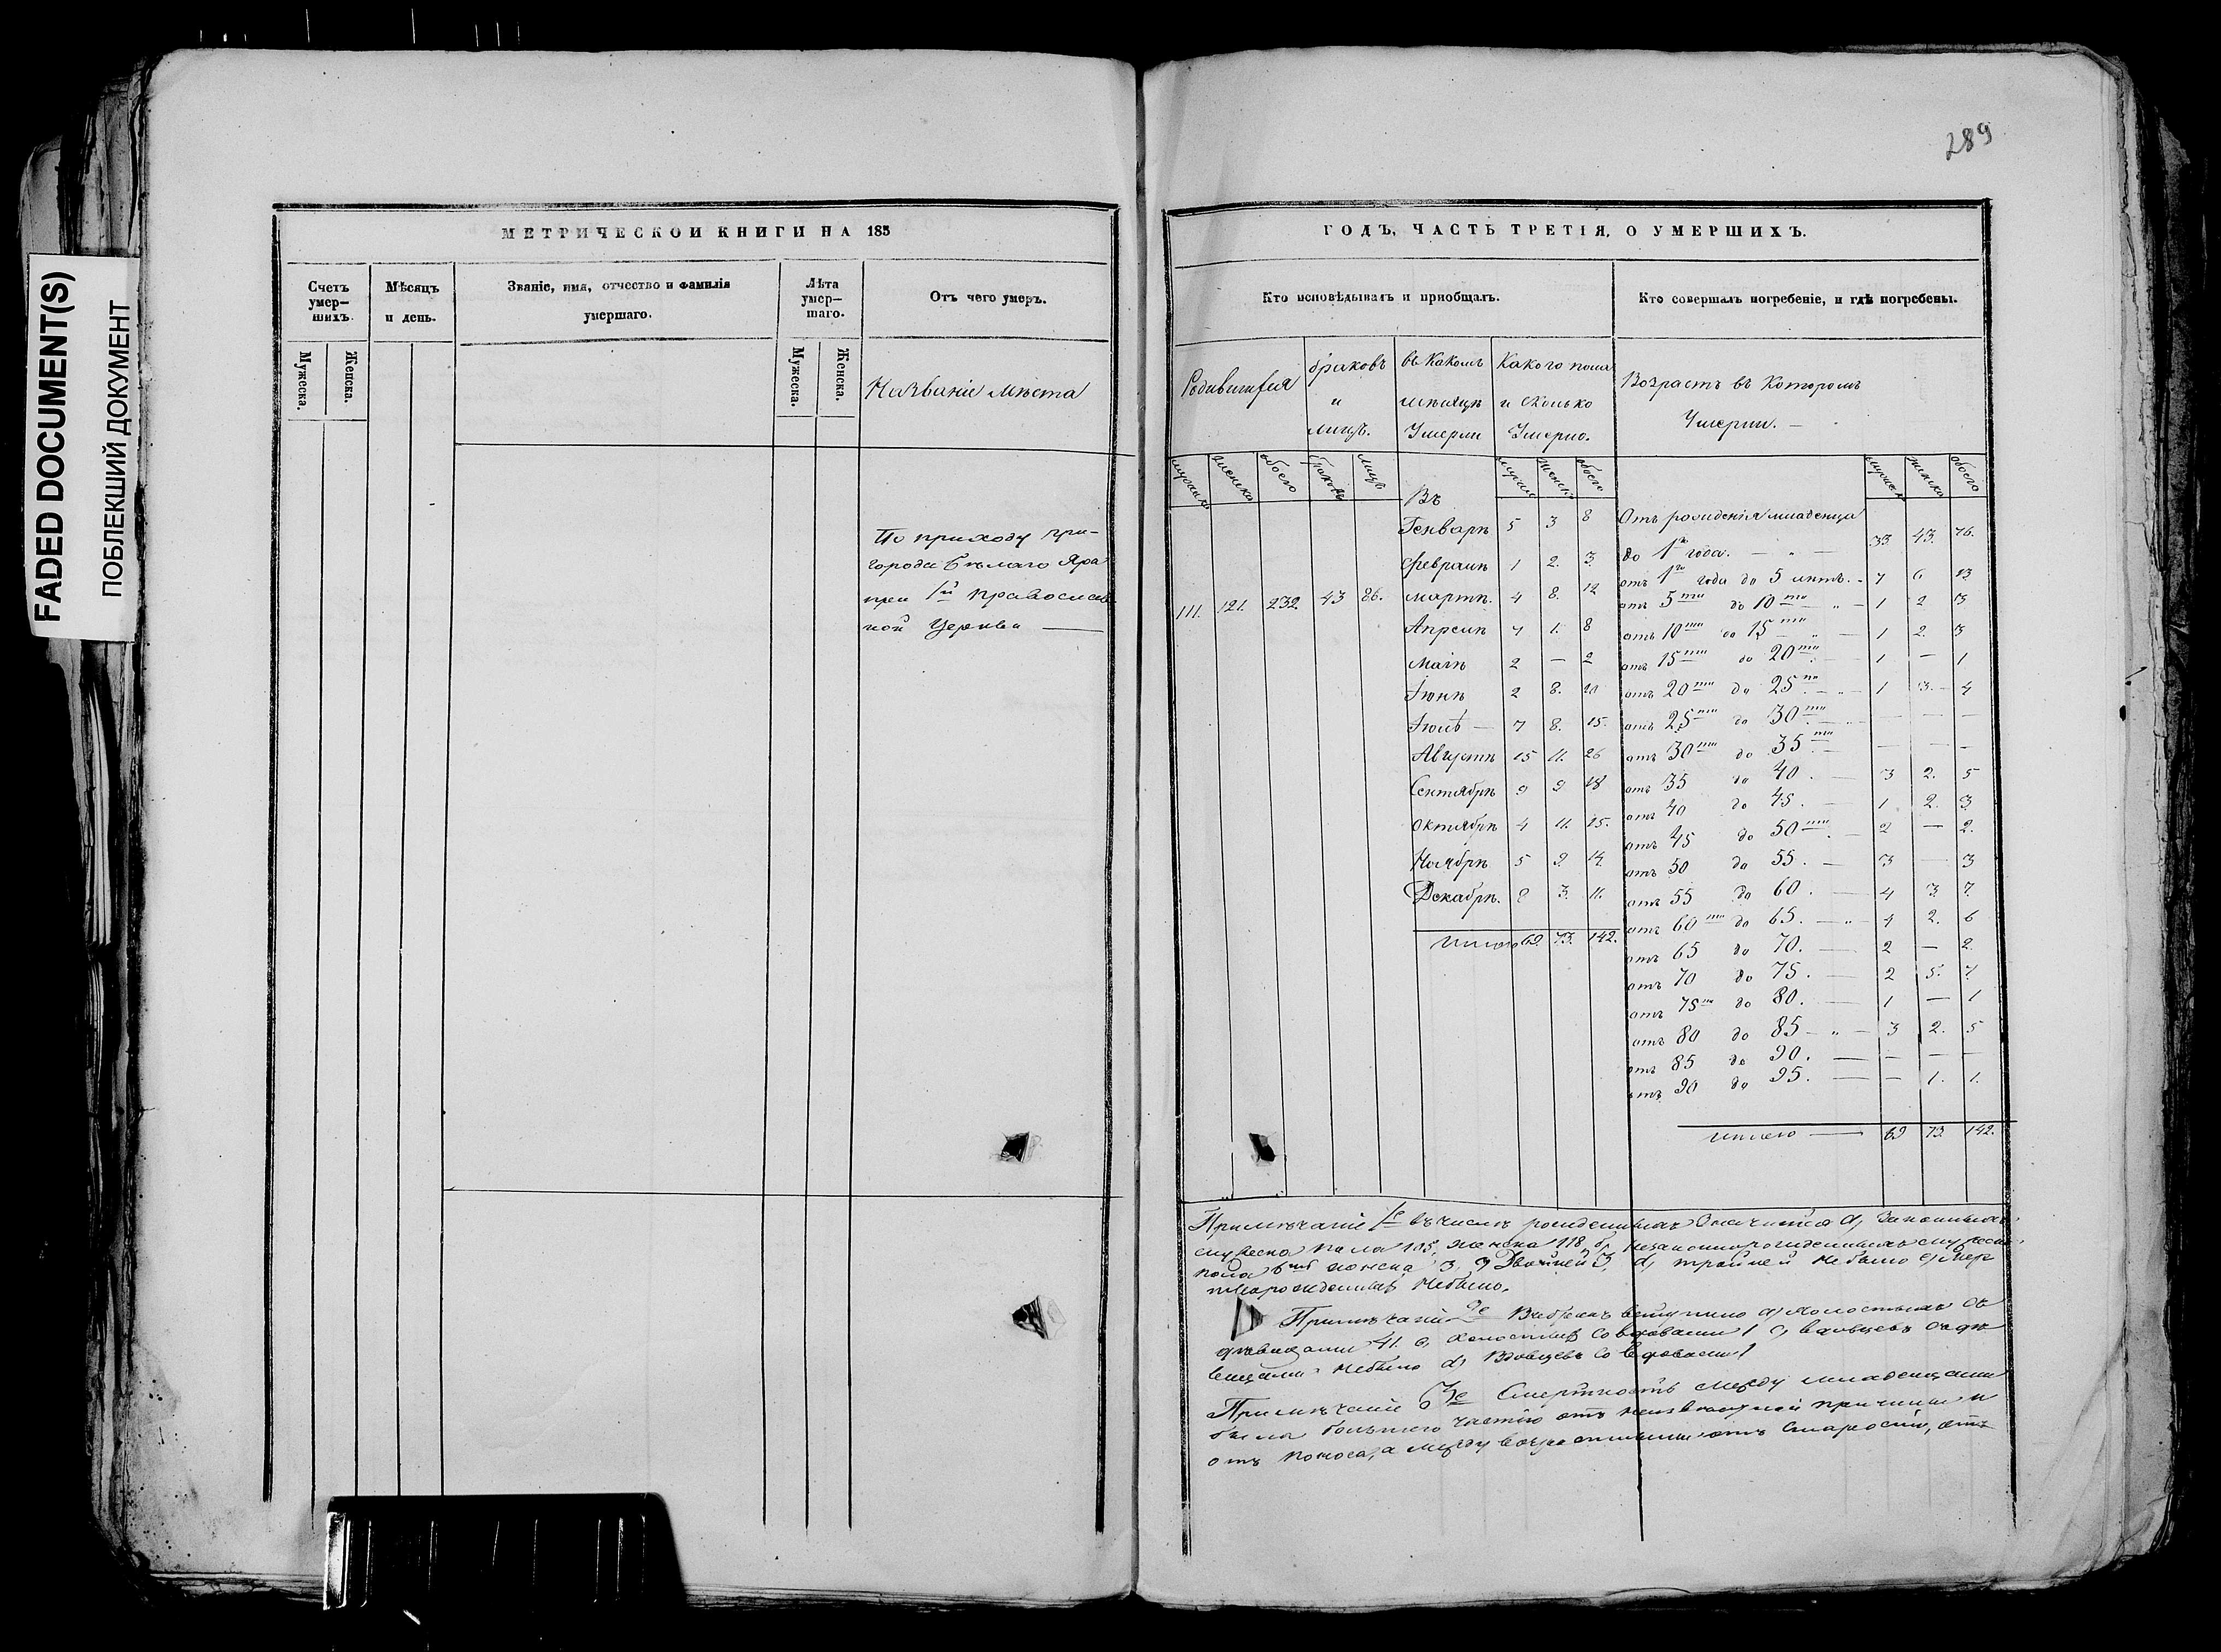 FADED DOCUMENT(S)
ПОБЛЕКШИЙ ДОКУМЕНТ
289
МЕТРИЧЕСКОЙ КНИГИ НА 185
Счетъ умер–шихъ.
Мѣсяцъ и день.
Званіе, имя, отчество и фамилія умершаго.
Лѣта умер–шаго.
Отъ чего умеръ.
Мужеска.
Женска.
Мужеска.
Женска.
Названіе мѣста
По приходу при-
города Бѣлаго Яра
при 1й православ
ной Церкви —
ГОДЪ, ЧАСТЬ ТРЕТІЯ, О УМЕРШИХЪ.
Кто исповѣдывалъ и пріобщалъ.
Кто совершалъ погребеніе, и гдѣ погребены.
Родившіеся
браковъ и лицъ.
въ какомъ мѣсяцѣ Умерли
Какого пола и сколько Умерло.
Возрастъ въ которомъ Умерли. —
мужска женска обоего браковъ лицъ
мужска женска обоего
мужска женска обоего
111. 121. 232 43 86.
Въ
Генварѣ 5 3 8
Февралѣ 1 2. 3.
Мартѣ. 4 8. 12
Апрелѣ 7 1. 8
Маіѣ 2 — 2
Іюнѣ 2 8. 10
Іюлѣ — 7 8. 15.
Августѣ 15 11. 26
Сентябрѣ 9 9 18
Октябрѣ 4 11. 15.
Ноябрѣ 5 9. 14.
Декабрѣ. 8 3. 11.
Итого 69 73. 142.
Отъ рожденія младенца
до 1го года. — „ — 33. 43. 76.
отъ 1го года до 5 лѣтъ. - 7 6 13
отъ 5ти до 10ти „ — 1 2 3
отъ 10ти до 15ти „ — 1 2. 3
отъ 15ти до 20ти — 1 — 1
отъ 20ти до 25ти — 1 3. 4
отъ 25ти до 30ти — — —
отъ 30ти до 35ти — — —
отъ 35 до 40. — 3 2. 5
отъ 40 до 45. — 1 2. 3
отъ 45 до 50ти. — 2 — 2.
отъ 50 до 55. — 3 — 3
отъ 55 до 60. — 4 3. 7.
отъ 60ти до 65. — „ — 4 2. 6
отъ 65 до 70. — 2 — 2.
отъ 70 до 75. — 2 5. 7.
отъ 75ти до 80. — 1 — 1
отъ 80 до 85 — „ — 3 2. 5
отъ 85 до 90. — — — —
отъ 90 до 95. — — 1. 1.
Итого — 69 73. 142.
Примѣчаніе 1е въ числѣ рожденныхъ значится а, Законныхъ
мужеска пола 105, женска 118, б, незаконнорожденныхъ мужеска
пола 6ть женска 3, Двойней 3, d, тройней не было е, мер
творожденныхъ небыло.
Примѣчаніе 2е Въ бракъ вступило а, холостыхъ съ
дѣвицами 41. холостыхъ со вдовами 1 вдовцевъ съ дѣ
вицами небыло d, Вдовцевъ со вдовами 1
Примѣчаніе 3е Смертность между младенцами
была большею частію отъ неизвѣстной причины и
отъ поноса, а между возрастными отъ старости, отъ